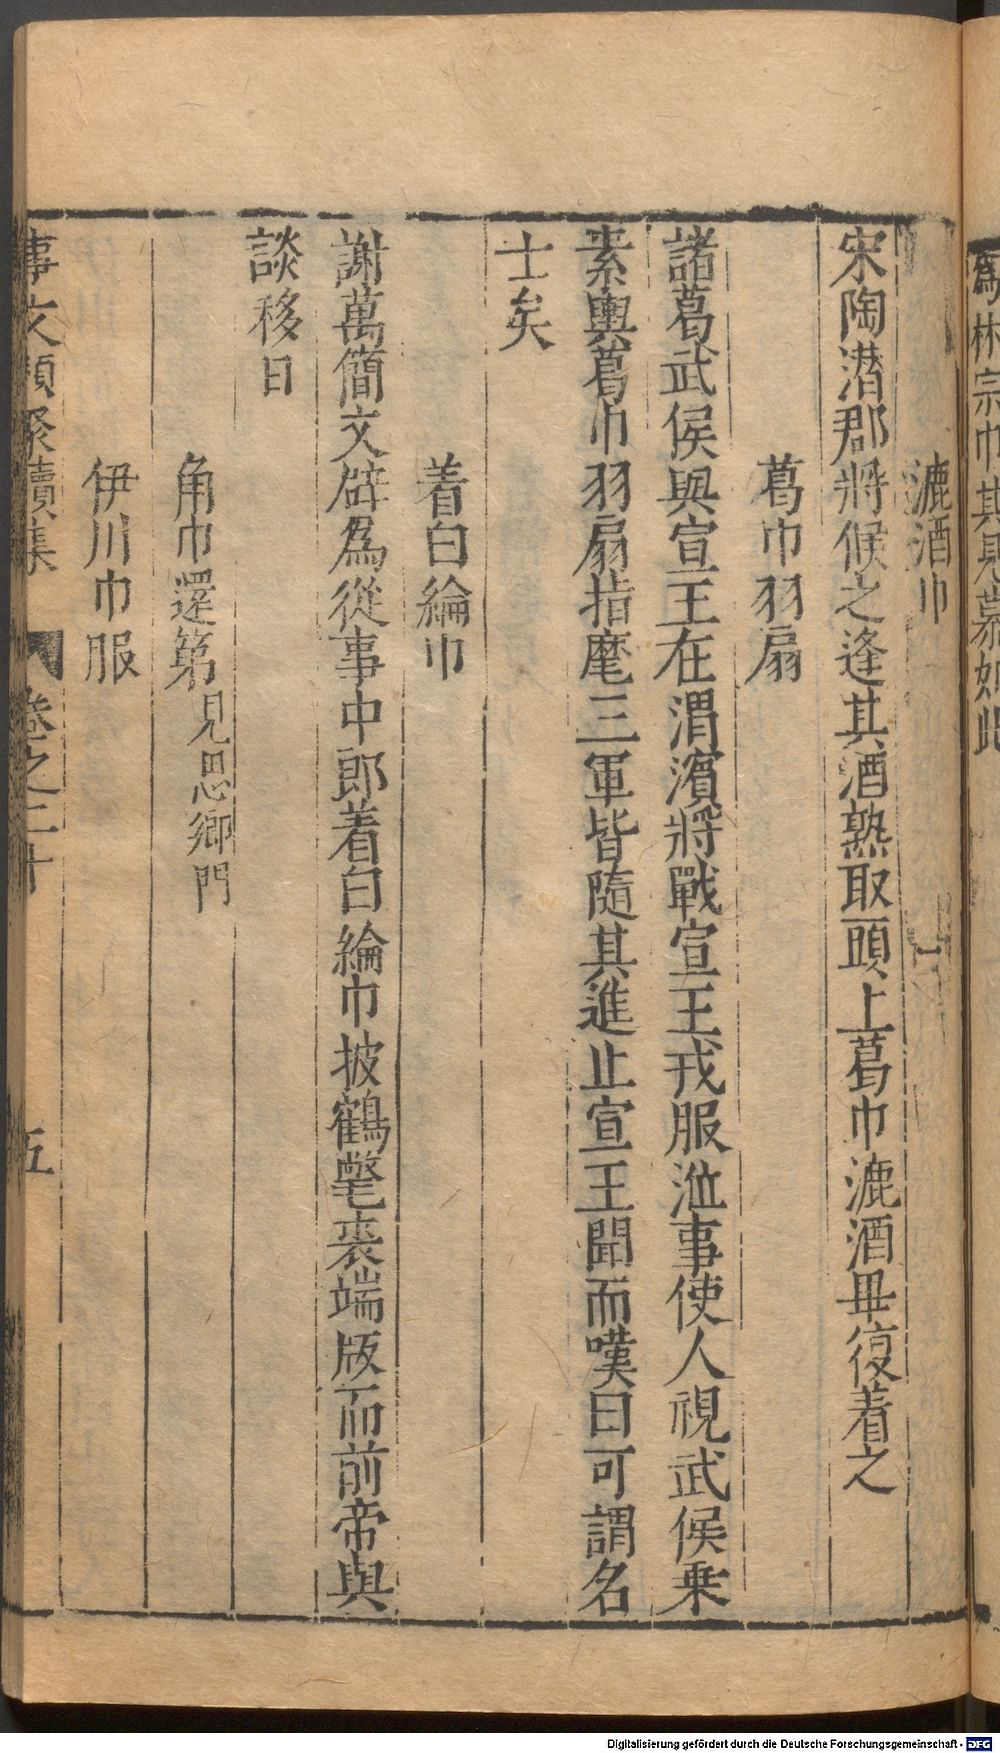 爲林宗巾其見慕如此
漉酒巾
宋陶潛郡將候之逢其酒熟取頭上葛巾漉酒畢復着之
葛巾羽扇
諸葛武侯與宣王在渭濱將戰宣王戎服涖事使人視武侯乗
素輿葛巾羽扇指麾三軍皆隨其進止宣王聞而嘆曰可謂名
士矣
着白綸巾
謝萬簡文辟爲從事中郎着白綸巾披鶴氅裘端版而前帝與
談移日
角巾還第見思鄉門
伊川巾服
事文類聚續集 卷之二十 五
Digitalisierung gefördert durch die Deutsche Forschungsgemeinschaft - DFG